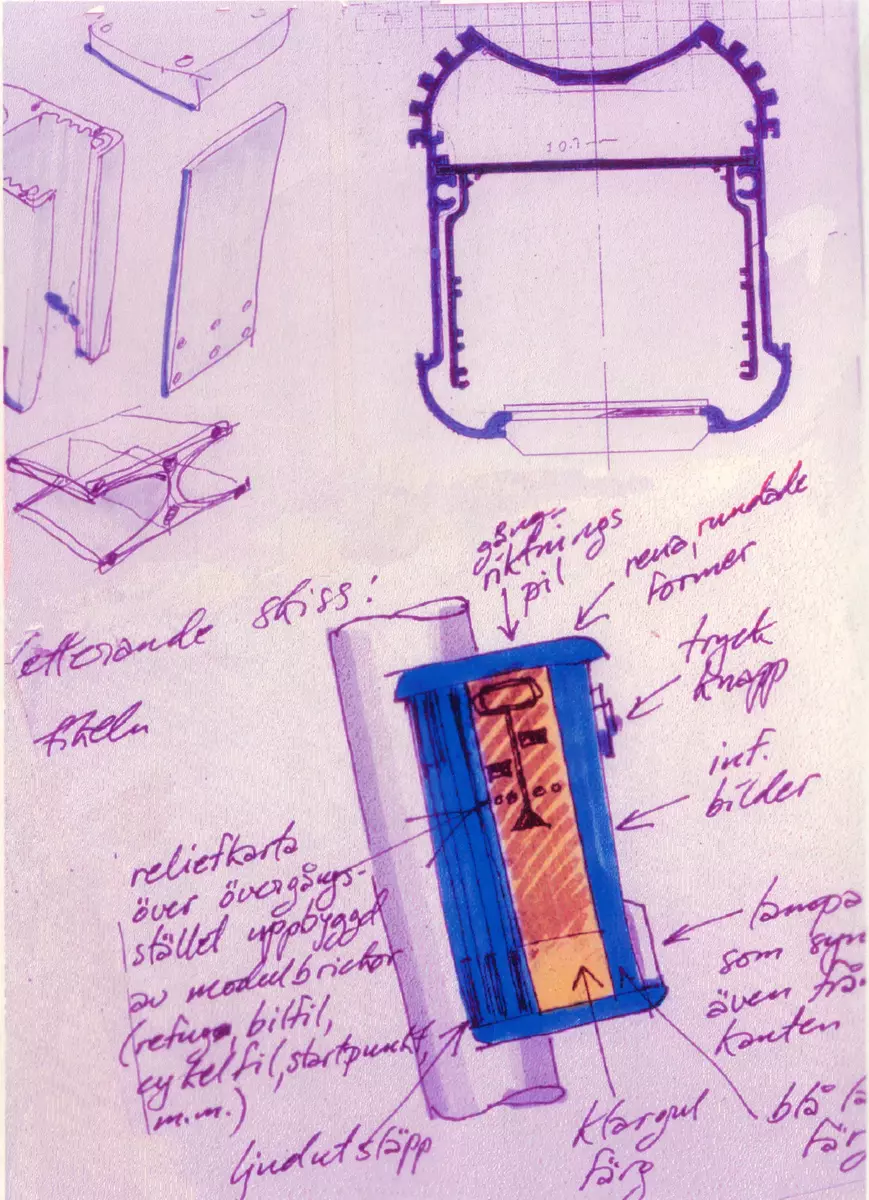 10.7
gång-
riktnings
pil
rena, rundade
former
skiss:
tryck
knapp
inf.
bilder
reliefkarta
över övergångs-
stället uppbyggd
av modulbrickor
(refuge, bilfil,
cykelfil, startpunkt,
m.m.)
lampa
som syn
även frå
kanten
ljudutsläpp
klargul
färg
blå
färg